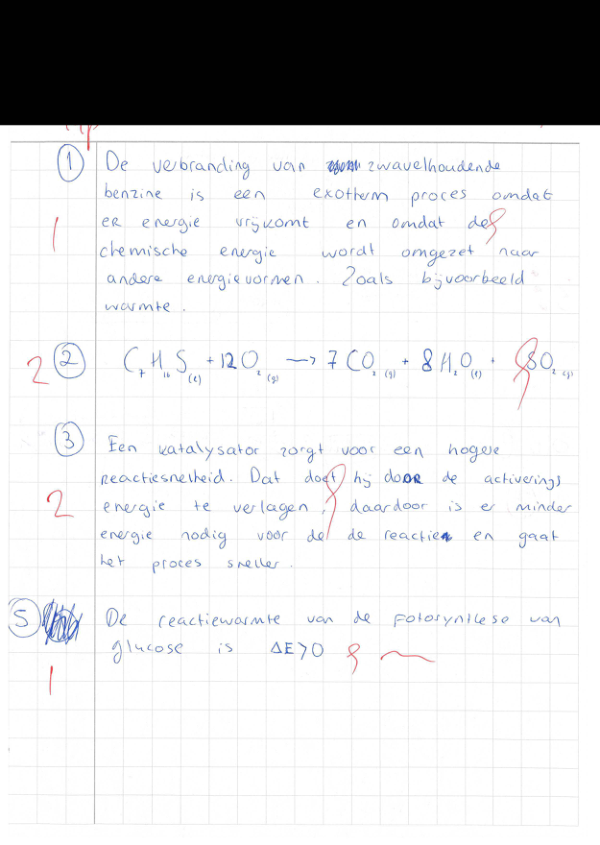 1 De verbranding van zwavelhoudende
benzine is een exotherm proces omdat
er energie vrijkomt en omdat de
1 chemische energie wordt omgezet naar
andere energievormen. Zoals bijvoorbeeld
warmte.
2 2 C₇H₁₆S (l) + 12 O₂ (g) → 7 CO₂ (g) + 8 H₂O (l) + SO₂ (g)
3 Een katalysator zorgt voor een hogere
reactiesnelheid. Dat doet hij door de activerings
2 energie te verlagen, daardoor is er minder
energie nodig voor de de reactie en gaat
het proces sneller.
5 De reactiewarmte van de fotosynthese van
glucose is ΔE>0
1